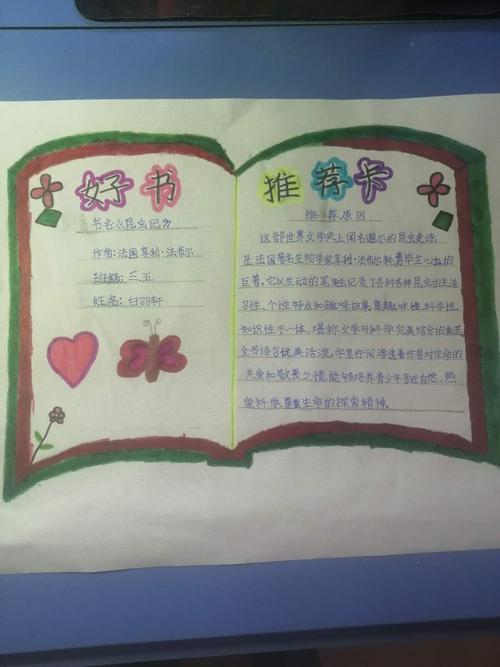 好书
书名：《昆虫记》
作者：法国 亨利·法布尔
班级：三、五
姓名：白羽轩
推荐卡
推荐原因
这部世界文学史上闻名遐尔的昆虫史诗
是法国著名生物学家亨利·法布尔耗费毕生心血的
巨著。它以生动的笔触记录了各种各样昆虫的生活
习性、个性特点和趣味故事，集趣味性、科学性、
知识性于一体，堪称文学与科学完美结合的典范
全书语言优美活泼，字里行间渗透着作者对生命的
关爱和敬畏之情能够培养青少年亲近自然、热
爱科学 生命的探索精神。